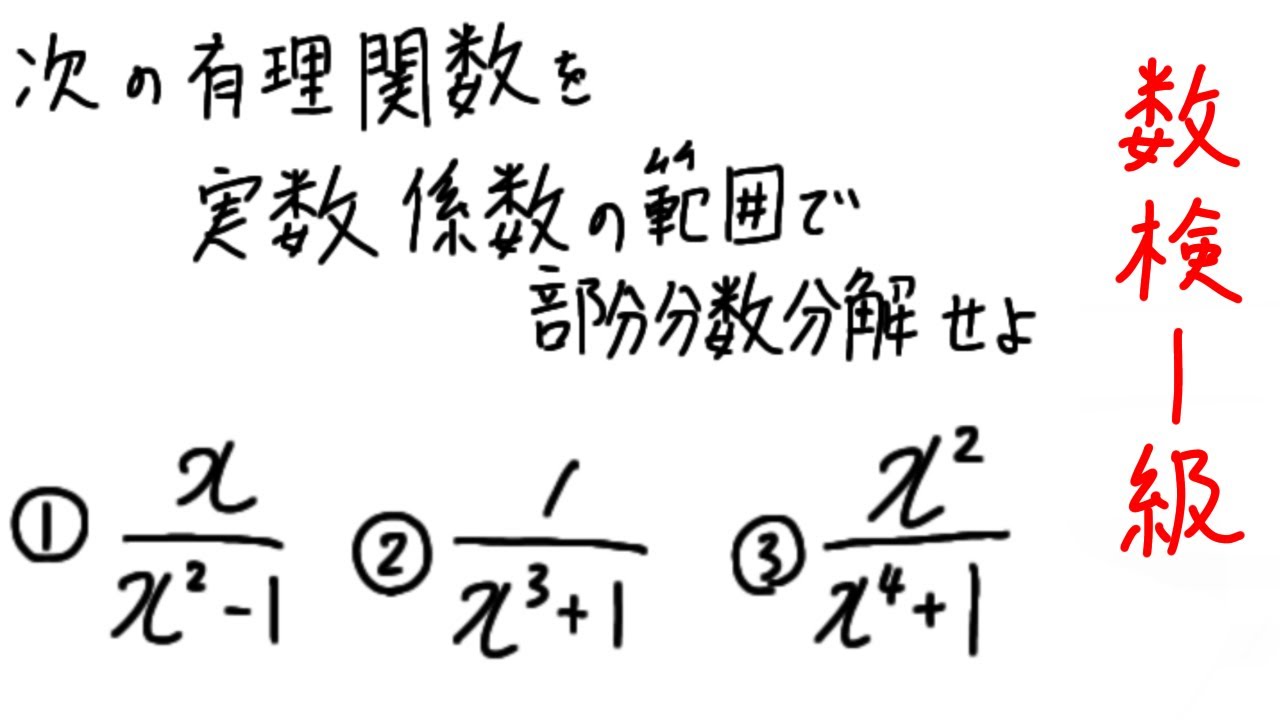 次の有理関数を
実数係数の範囲で
部分分数分解せよ
① x/(x²-1) ② 1/(x³+1) ③ x²/(x⁴+1)
数検1級